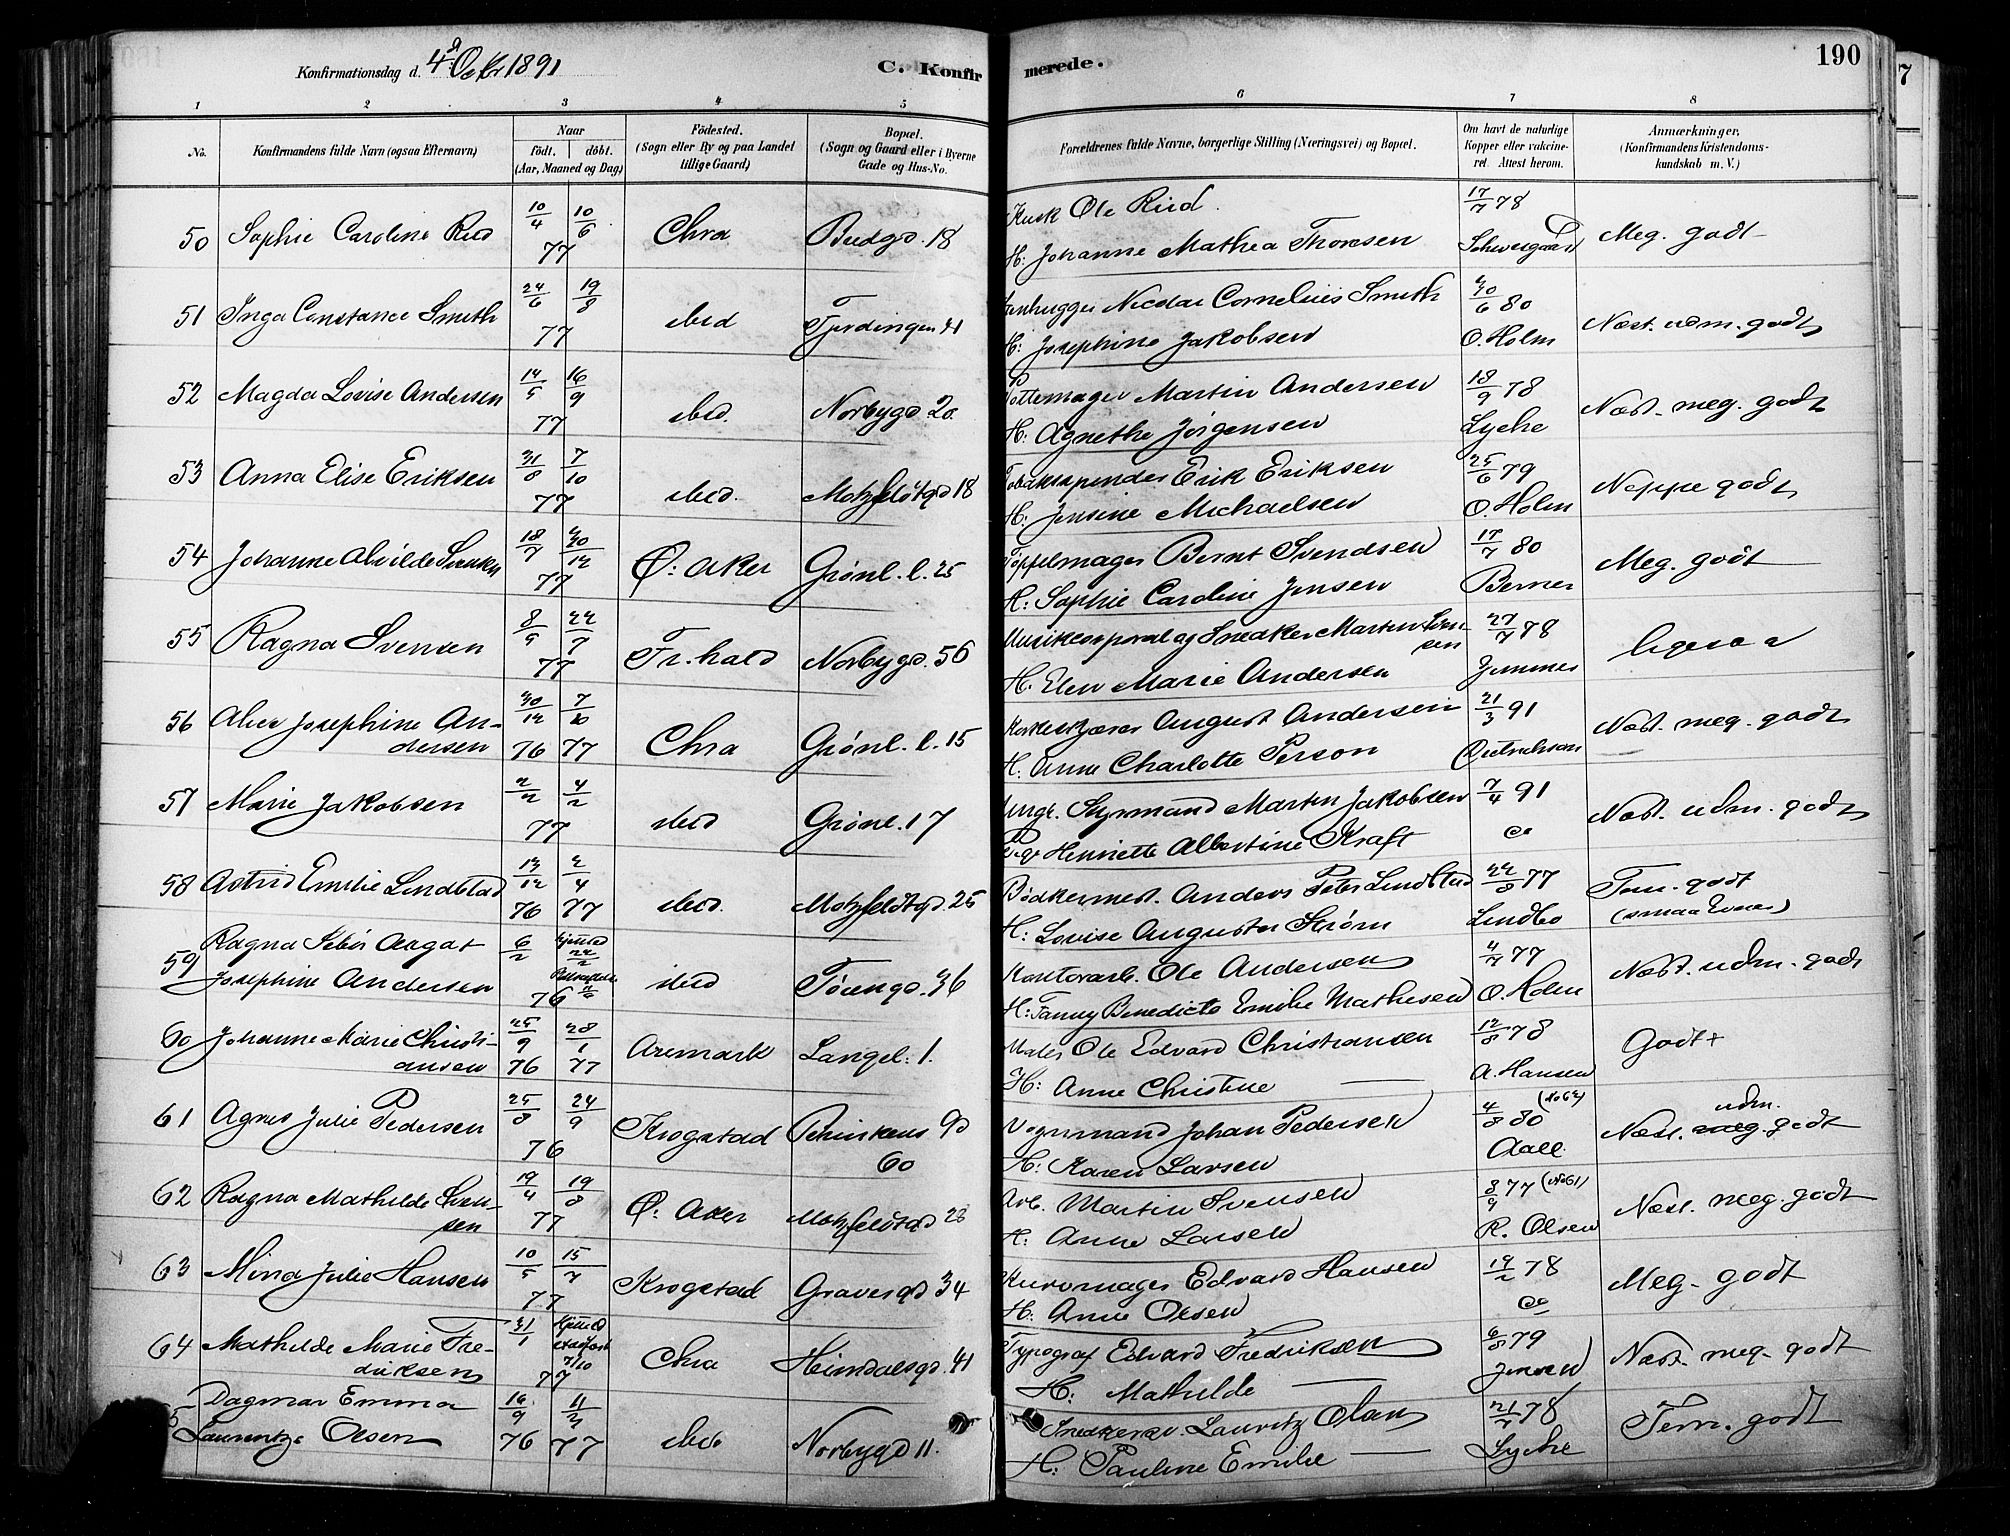 Konfirmationsdag d. 4de Octr 1891
C. Konfirmerede.
190
1 2 3 4 5 6 7 8
No.
Konfirmandens fulde Navn (ogsaa Efternavn)
Naar
født. døbt.
(Aar, Maaned og Dag)
Fødested.
(Sogn eller By og paa Landet
tillige Gaard)
Bopæl.
(Sogn og Gaard eller i Byerne
Gade og Hus-No.
Forældrenes fulde Navne, borgerlige Stilling (Næringsvei) og Bopæl.
Om havt de naturlige
Kopper eller vakcine-
ret. Attest herom.
Anmærkninger.
(Konfirmandens Kristendoms-
kundskab m. V.)
50 Sophie Caroline Rud 10/4 10/6 77 Chra Budgd. 18 Kusk Ole Rud. 17/7 78
H: Johanne Mathea Thoresen Schweigaard Meg. godt
51 Inga Constance Smith 24/6 19/8 77 ibid Fjerdingen 41 Nicolai Cornelius Smith 20/6 80
H: Josephine Jakobsen O. Holm Næst. udm. godt
52 Magda Lovise Andersen 14/5 16/9 77 ibid. Norbygd. 20 Pottemager Martin Andersen 18/9 78
H: Agnethe Jørgensen Lyche Næst. meg. godt
53 Anna Elise Eriksen 31/8 7/10 77 ibid. Motzfeldtgd 18 Tobakspinder Erik Eriksen 25/6 79
H: Jensine Michaelsen O. Holm Neppe godt
54 Johanne Alvilde Svensen 18/7 20/12 77 Ø: Aker Grønl. l. 25 Tøffelmager Bernt Svendsen 17/7 80
H: Sophie Caroline Jensen Berner Meg. godt
55 Ragna Svensen 8/5 22/7 77 Fr. hald Norbygd. 56 Musikkorporal og Snedker Martin Sven-
sen 27/7 78
H. Elen Marie Andersen ligesaa
56 Alice Josephine An-
dersen 30/12 76 7/10 77 Chra Grønl. l. 15 August Andersen 21/3 91
H. Anne Charlotte Person Næst. meg. godt
57 Marie Jakobsen 2/2 4/2 77 ibid Grønl. 17 Ungk. Styrmand Martin Jakobsen 7/4 91
Pg. Henriette Albertine Kraft co Næst. udm. godt
58 Astrid Emilie Lindblad 13/12 76 2/4 77 ibid. Motzfeldtgd. 25 Bødkermest. Anders Peter Lindblad 22/8 77
H: Lovise Augusta Strøm Lindbo Tem. godt
59 Ragna Aagat
Josephine Andersen 6/2 76 ibid Tøiengd. 36 Kontorarb. Ole Andersen 4/7 77
H: Fanny Benedicte Emilie Mathisen O. Holm Næst. udm. godt
60 Johanne Marie Christi-
ansen 25/9 76 28/1 77 Aremark Langel: 1. Maler Ole Edvard Christiansen 12/8 78
H: Anne Christine — A. Hansen Godt+
61 Agnes Julie Pedersen 25/8 24/9 76 Krogstad Schinkens Gd 60 Vognmand Johan Pedersen 4/8 80 (No 62)
H: Karen Larsen Aall. Næst. udm. meg. godt
62 Ragna Mathilde Sven-
sen 19/4 19/8 77 Ø: Aker Motzfeldtgd 28 Arb. Martin Svensen 8/9 77 (No 61)
H. Anne Larsen R. Olsen Næst. meg. godt
63 Mina Julie Hansen 10/5 15/7 77 Krogstad Gravergd 34 Kurvmager Edvard Hansen 19/2 78
H. Anne Olsen co Meg. godt
64 Mathilde Marie Fre-
driksen 31/1 77 Chra Heimdalsgd. 41 Typograf Edvard Fredriksen 6/8 79
H: Mathilde — Jensen Næst. meg. godt
Dagmar Emma
Laurentze Olsen 16/9 76 11/3 77 ibid Norbygd 11. Snedkersv. Lauritz Olsen 21/7 78
H: Pauline Emilie — Lyche Tem. godt